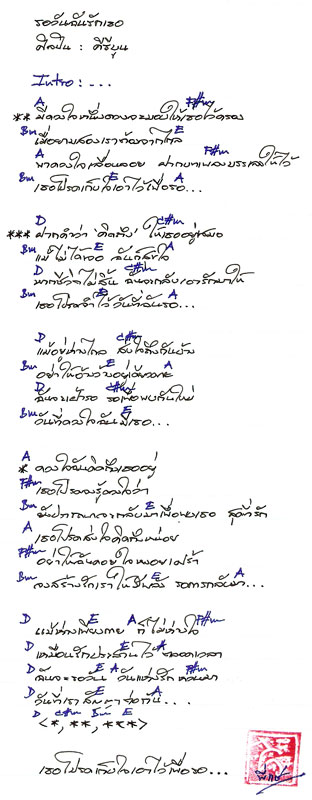 รอวันฉันรักเธอ
ศิลปิน : คีรีบูน
Intro : . . .
A F#m
** มีดวงใจหนึ่งดวงจะมอบให้เธอไว้ครอง
Bm E
เมื่อยามสองเราต้องจากไกล
A F#m
พาดวงใจเลื่อนลอย ฝากบทเพลงบรรเลงให้ไว้
Bm E A
เธอโปรดเก็บใจเอาไว้เพื่อรอ...
D C#m
*** ฝากคำว่า "คิดถึง" ให้เธออยู่เสมอ
Bm E A
แม้ไม่ได้เจอ ฉันก็สุขใจ
D C#m
หากชีวาไม่สิ้น ฉันจะกลับเอารักมาให้
Bm E A
เธอโปรดจำไว้ วันที่ฉันรอ...
D C#m
แม้อยู่ห่างไกล ส่งใจถึงกันบ้าง
Bm E A
อย่าให้อ้างว้างอยู่เดียวดาย
D C#m
ฉันจะเฝ้ารอ รอเพื่อพบกันใหม่
Bm E
วันที่ดวงใจฉันมีเธอ...
A
* ดวงใจฉันคิดถึงเธออยู่
F#m
เธอโปรดจงรู้ดวงใจว่า
Bm E
ฉันปรารถนาจะกลับมาเพื่อพบเธอ สุดที่รัก
A
เธอโปรดส่งใจคิดถึงหน่อย
F#m
อย่าให้ฉันคอยใจหงอยเศร้า
Bm E A
จงสร้างรักเราให้ยืนยง รอการกลับมา...
D E A F#m
แม้ห่างเพียงกาย ก็ไม่ห่างใจ
D E A
เหมือนรักประสานไว้ ตลอดเวลา
D E A F#m
ฉันจะรอวัน วันแห่งรัก หวนมา
D E A
วันที่เราสัญญาต่อกันนี้...
D C#m Bm E
<*, **, ***>
เธอโปรดเก็บใจเอาไว้เพื่อรอ...